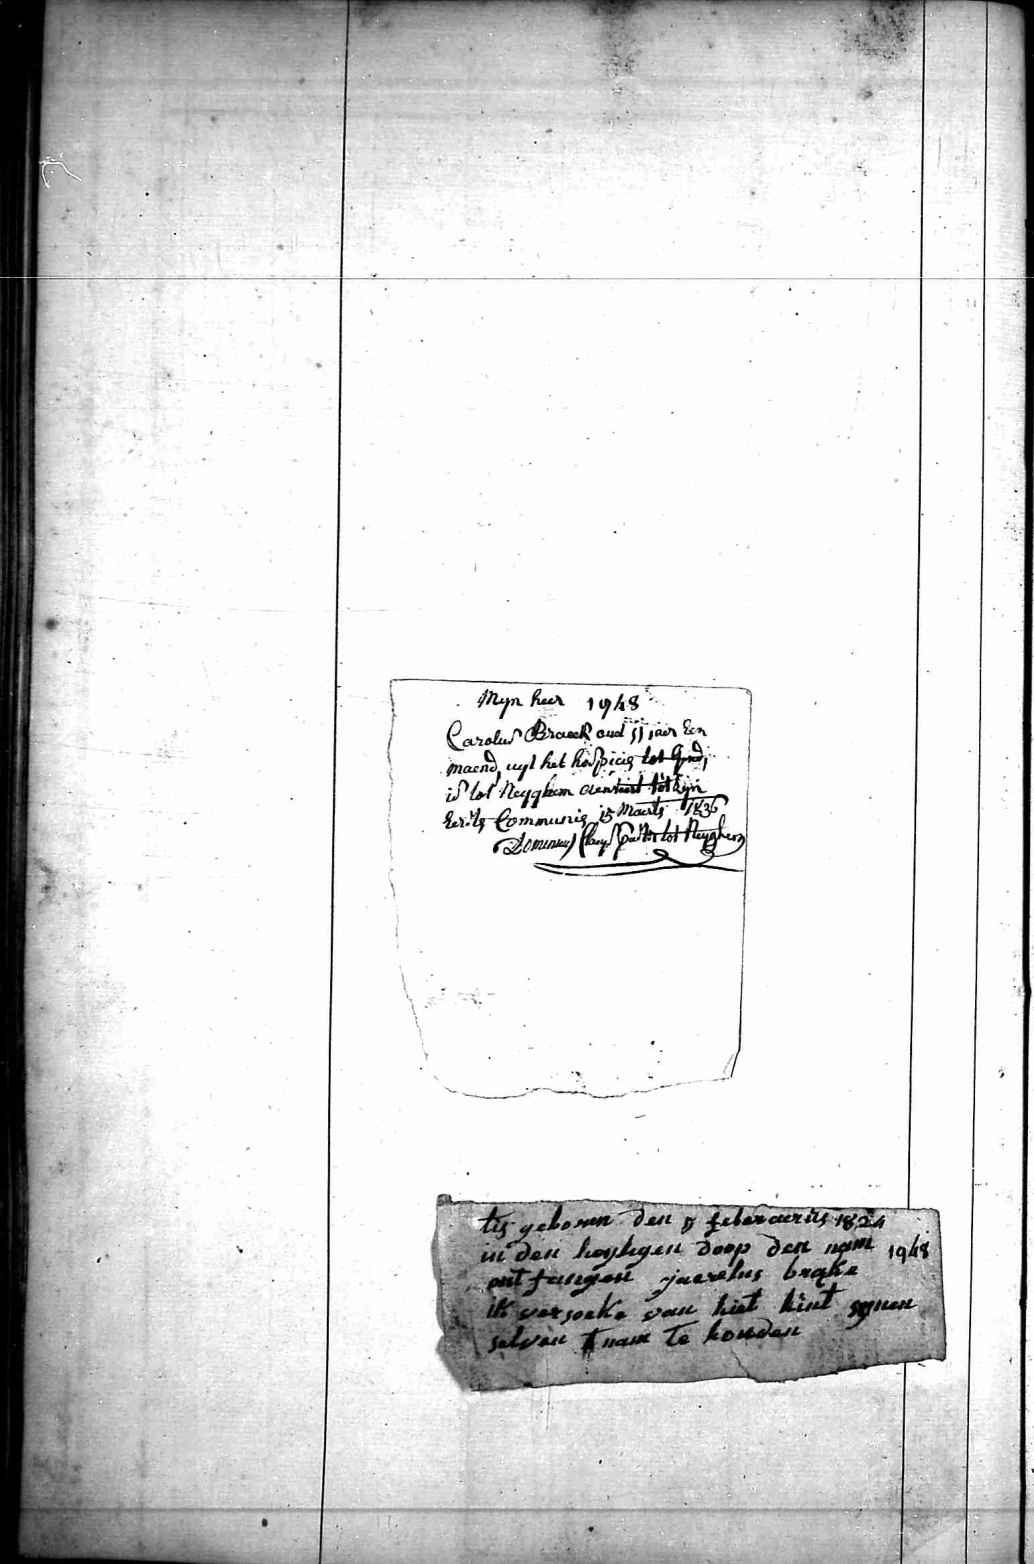 Myn heer 1948
Carolus Braeck oud 11 jaer Een
maend, uyt het hospicie tot Gend,
is tot Neyghem aenveert tot Zyn
Eerste Communie 15 Maerts 1836
Dominus Claeys Pastor tot Neyghem
tis geboren den 5 feberuarius 1824
in den heyligen doop den nam 1948
ontfangen jaerelus brake
ik versoeke van hiet kint synen
selven nam te houden